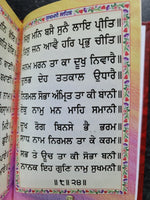 ਸੁਖਮਨੀ ਸਾਹਿਬ
ਜਿਸੁ ਮਨਿ ਬਸੈ ਸੁਨੈ ਲਾਇ ਪ੍ਰੀਤਿ॥
ਤਿਸੁ ਜਨ ਆਵੈ ਹਰਿ ਪ੍ਰਭੁ ਚੀਤਿ॥
ਜਨਮ ਮਰਨ ਤਾ ਕਾ ਦੂਖੁ ਨਿਵਾਰੈ॥
ਦੁਲਭ ਦੇਹ ਤਤਕਾਲ ਉਧਾਰੈ॥
ਨਿਰਮਲ ਸੋਭਾ ਅੰਮ੍ਰਿਤ ਤਾ ਕੀ ਬਾਨੀ॥
ਏਕੁ ਨਾਮੁ ਮਨ ਮਾਹਿ ਸਮਾਨੀ॥
ਦੂਖ ਰੋਗ ਬਿਨਸੇ ਭੈ ਭਰਮ॥
ਸਾਧ ਨਾਮ ਨਿਰਮਲ ਤਾ ਕੇ ਕਰਮ॥
ਸਭ ਤੇ ਊਚ ਤਾ ਕੀ ਸੋਭਾ ਬਨੀ॥
ਨਾਨਕ ਇਹ ਗੁਣਿ ਨਾਮੁ ਸੁਖਮਨੀ॥
॥੮॥੨੪॥